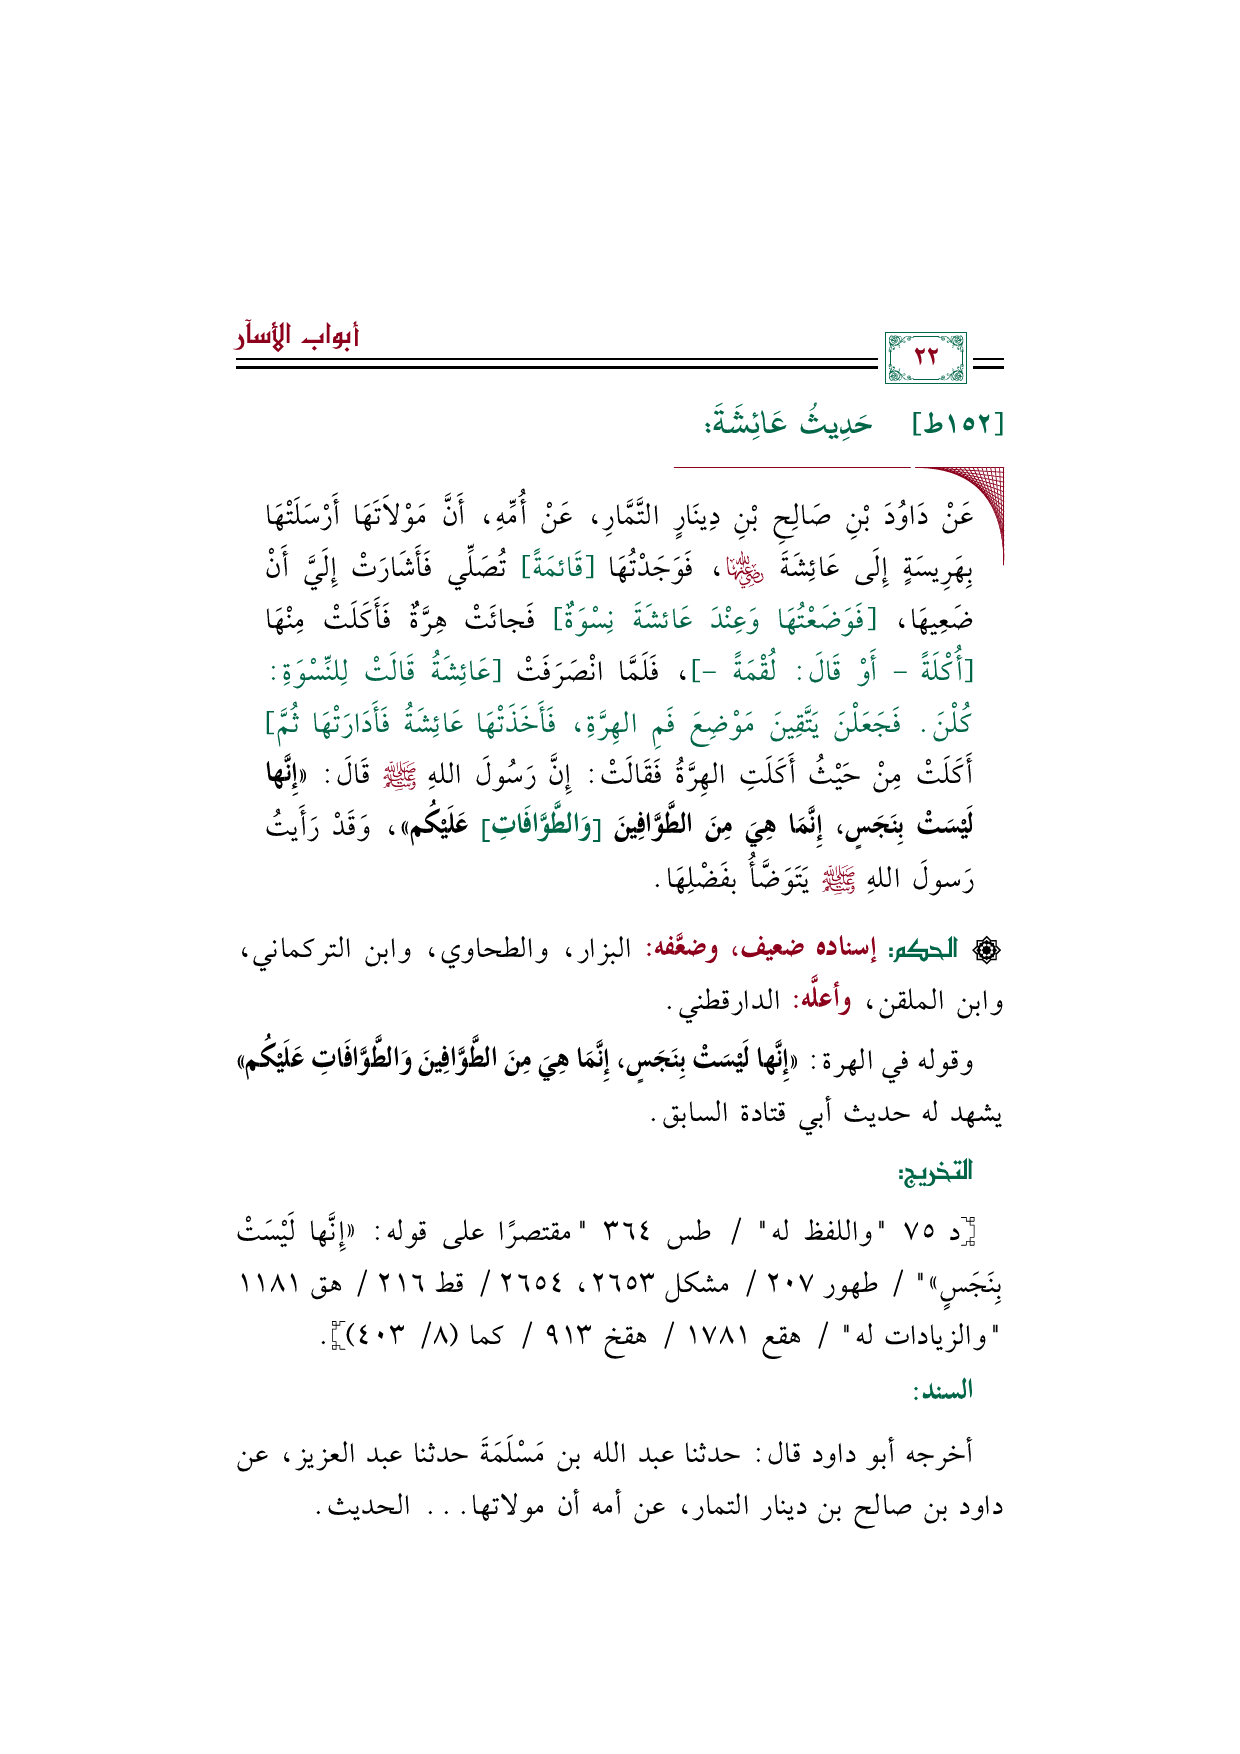 أبواب الأسآر
٢٢
[١٥٢ط] حَدِيثُ عَائِشَةَ:
عَنْ دَاوُدَ بْنِ صَالِحِ بْنِ دِينَارٍ التَّمَّارِ، عَنْ أُمِّهِ، أَنَّ مَوْلاَتَهَا أَرْسَلَتْهَا
بِهَرِيسَةٍ إِلَى عَائِشَةَ رضي الله عنها، فَوَجَدْتُهَا [قَائمَةً] تُصَلِّي فَأَشَارَتْ إِلَيَّ أَنْ
ضَعِيهَا، [فَوَضَعْتُهَا وَعِنْدَ عَائشَةَ نِسْوَةٌ] فَجائَتْ هِرَّةٌ فَأَكَلَتْ مِنْهَا
[أُكْلَةً – أَوْ قَالَ: لُقْمَةً –]، فَلَمَّا انْصَرَفَتْ [عَائِشَةُ قَالَتْ لِلنِّسْوَةِ:
كُلْنَ. فَجَعَلْنَ يَتَّقِينَ مَوْضِعَ فَمِ الهِرَّةِ، فَأَخَذَتْهَا عَائِشَةُ فَأَدَارَتْهَا ثُمَّ]
أَكَلَتْ مِنْ حَيْثُ أَكَلَتِ الهِرَّةُ فَقَالَتْ: إِنَّ رَسُولَ اللهِ ﷺ قَالَ: «إِنَّها
لَيْسَتْ بِنَجَسٍ، إِنَّمَا هِيَ مِنَ الطَّوَّافِينَ [وَالطَّوَّافَاتِ] عَلَيْكُم»، وَقَدْ رَأَيتُ
رَسولَ اللهِ ﷺ يَتَوَضَّأُ بفَضْلِهَا.
الحكم: إسناده ضعيف، وضعَّفه: البزار، والطحاوي، وابن التركماني،
وابن الملقن، وأعلَّه: الدارقطني.
وقوله في الهرة: «إِنَّها لَيْسَتْ بِنَجَسٍ، إِنَّمَا هِيَ مِنَ الطَّوَّافِينَ وَالطَّوَّافَاتِ عَلَيْكُم»
يشهد له حديث أبي قتادة السابق.
التخريج:
[د ٧٥ "واللفظ له" / طس ٣٦٤ "مقتصرًا على قوله: «إِنَّها لَيْسَتْ
بِنَجَسٍ»" / طهور ٢٠٧ / مشكل ٢٦٥٣، ٢٦٥٤ / قط ٢١٦ / هق ١١٨١
"والزيادات له" / هقع ١٧٨١ / هقخ ٩١٣ / كما (٨/ ٤٠٣)].
السند:
أخرجه أبو داود قال: حدثنا عبد الله بن مَسْلَمَةَ حدثنا عبد العزيز، عن
داود بن صالح بن دينار التمار، عن أمه أن مولاتها... الحديث.